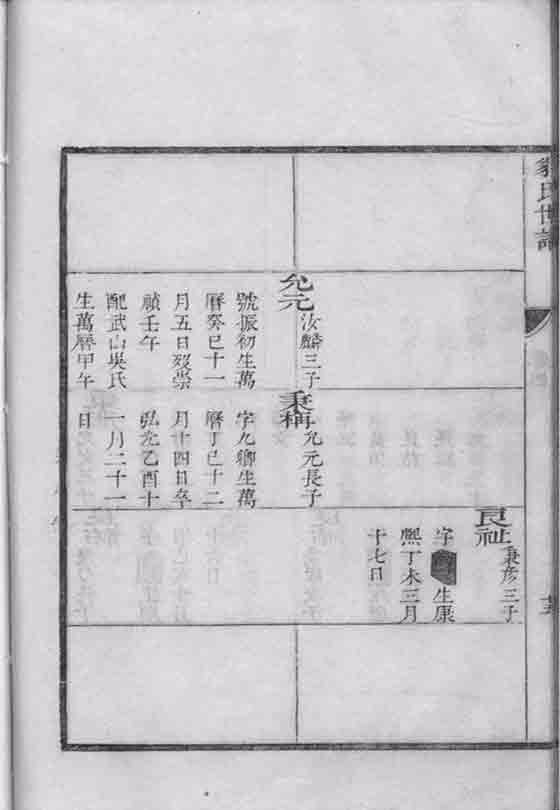 氏世譜
允元 汝麟三子
號振初生萬
曆癸巳十一
月五日歿崇
禎壬午
配武山吳氏
生萬曆甲午
秉稱 允元長子
字九卿生萬
曆丁巳十二
月十四日卒
弘光乙酉十
一月二十一
日
良祉 秉彥三子
字 生康
熙丁未三月
十七日